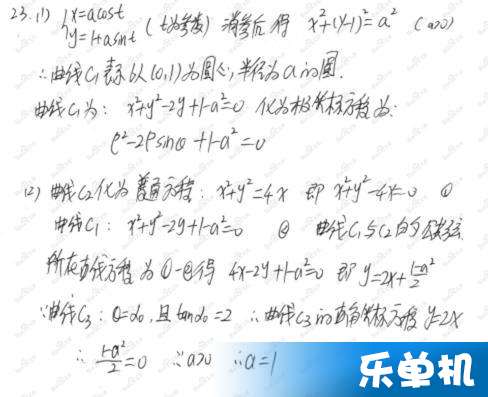 23.(1) {x=acost
y=1+asint (t为参数) 消参后得 x²+(y-1)²=a² (a>0)
∴曲线C₁表示以(0,1)为圆心,半径为a的圆.
曲线C₁为: x²+y²-2y+1-a²=0 化为极坐标方程为:
ρ²-2ρsinθ+1-a²=0
(2) 曲线C₂化为普通方程: x²+y²=4x 即 x²+y²-4x=0 ①
曲线C₁: x²+y²-2y+1-a²=0 ② 曲线C₁与C₂的公共弦
所在直线方程为①-②得 4x-2y+1-a²=0 即 y=2x+(1-a²)/2
∵曲线C₃: θ=α₀,且tanα₀=2 ∴曲线C₃的直角坐标方程y=2x
∴ (1-a²)/2=0 ∵a>0 ∴a=1
乐单机